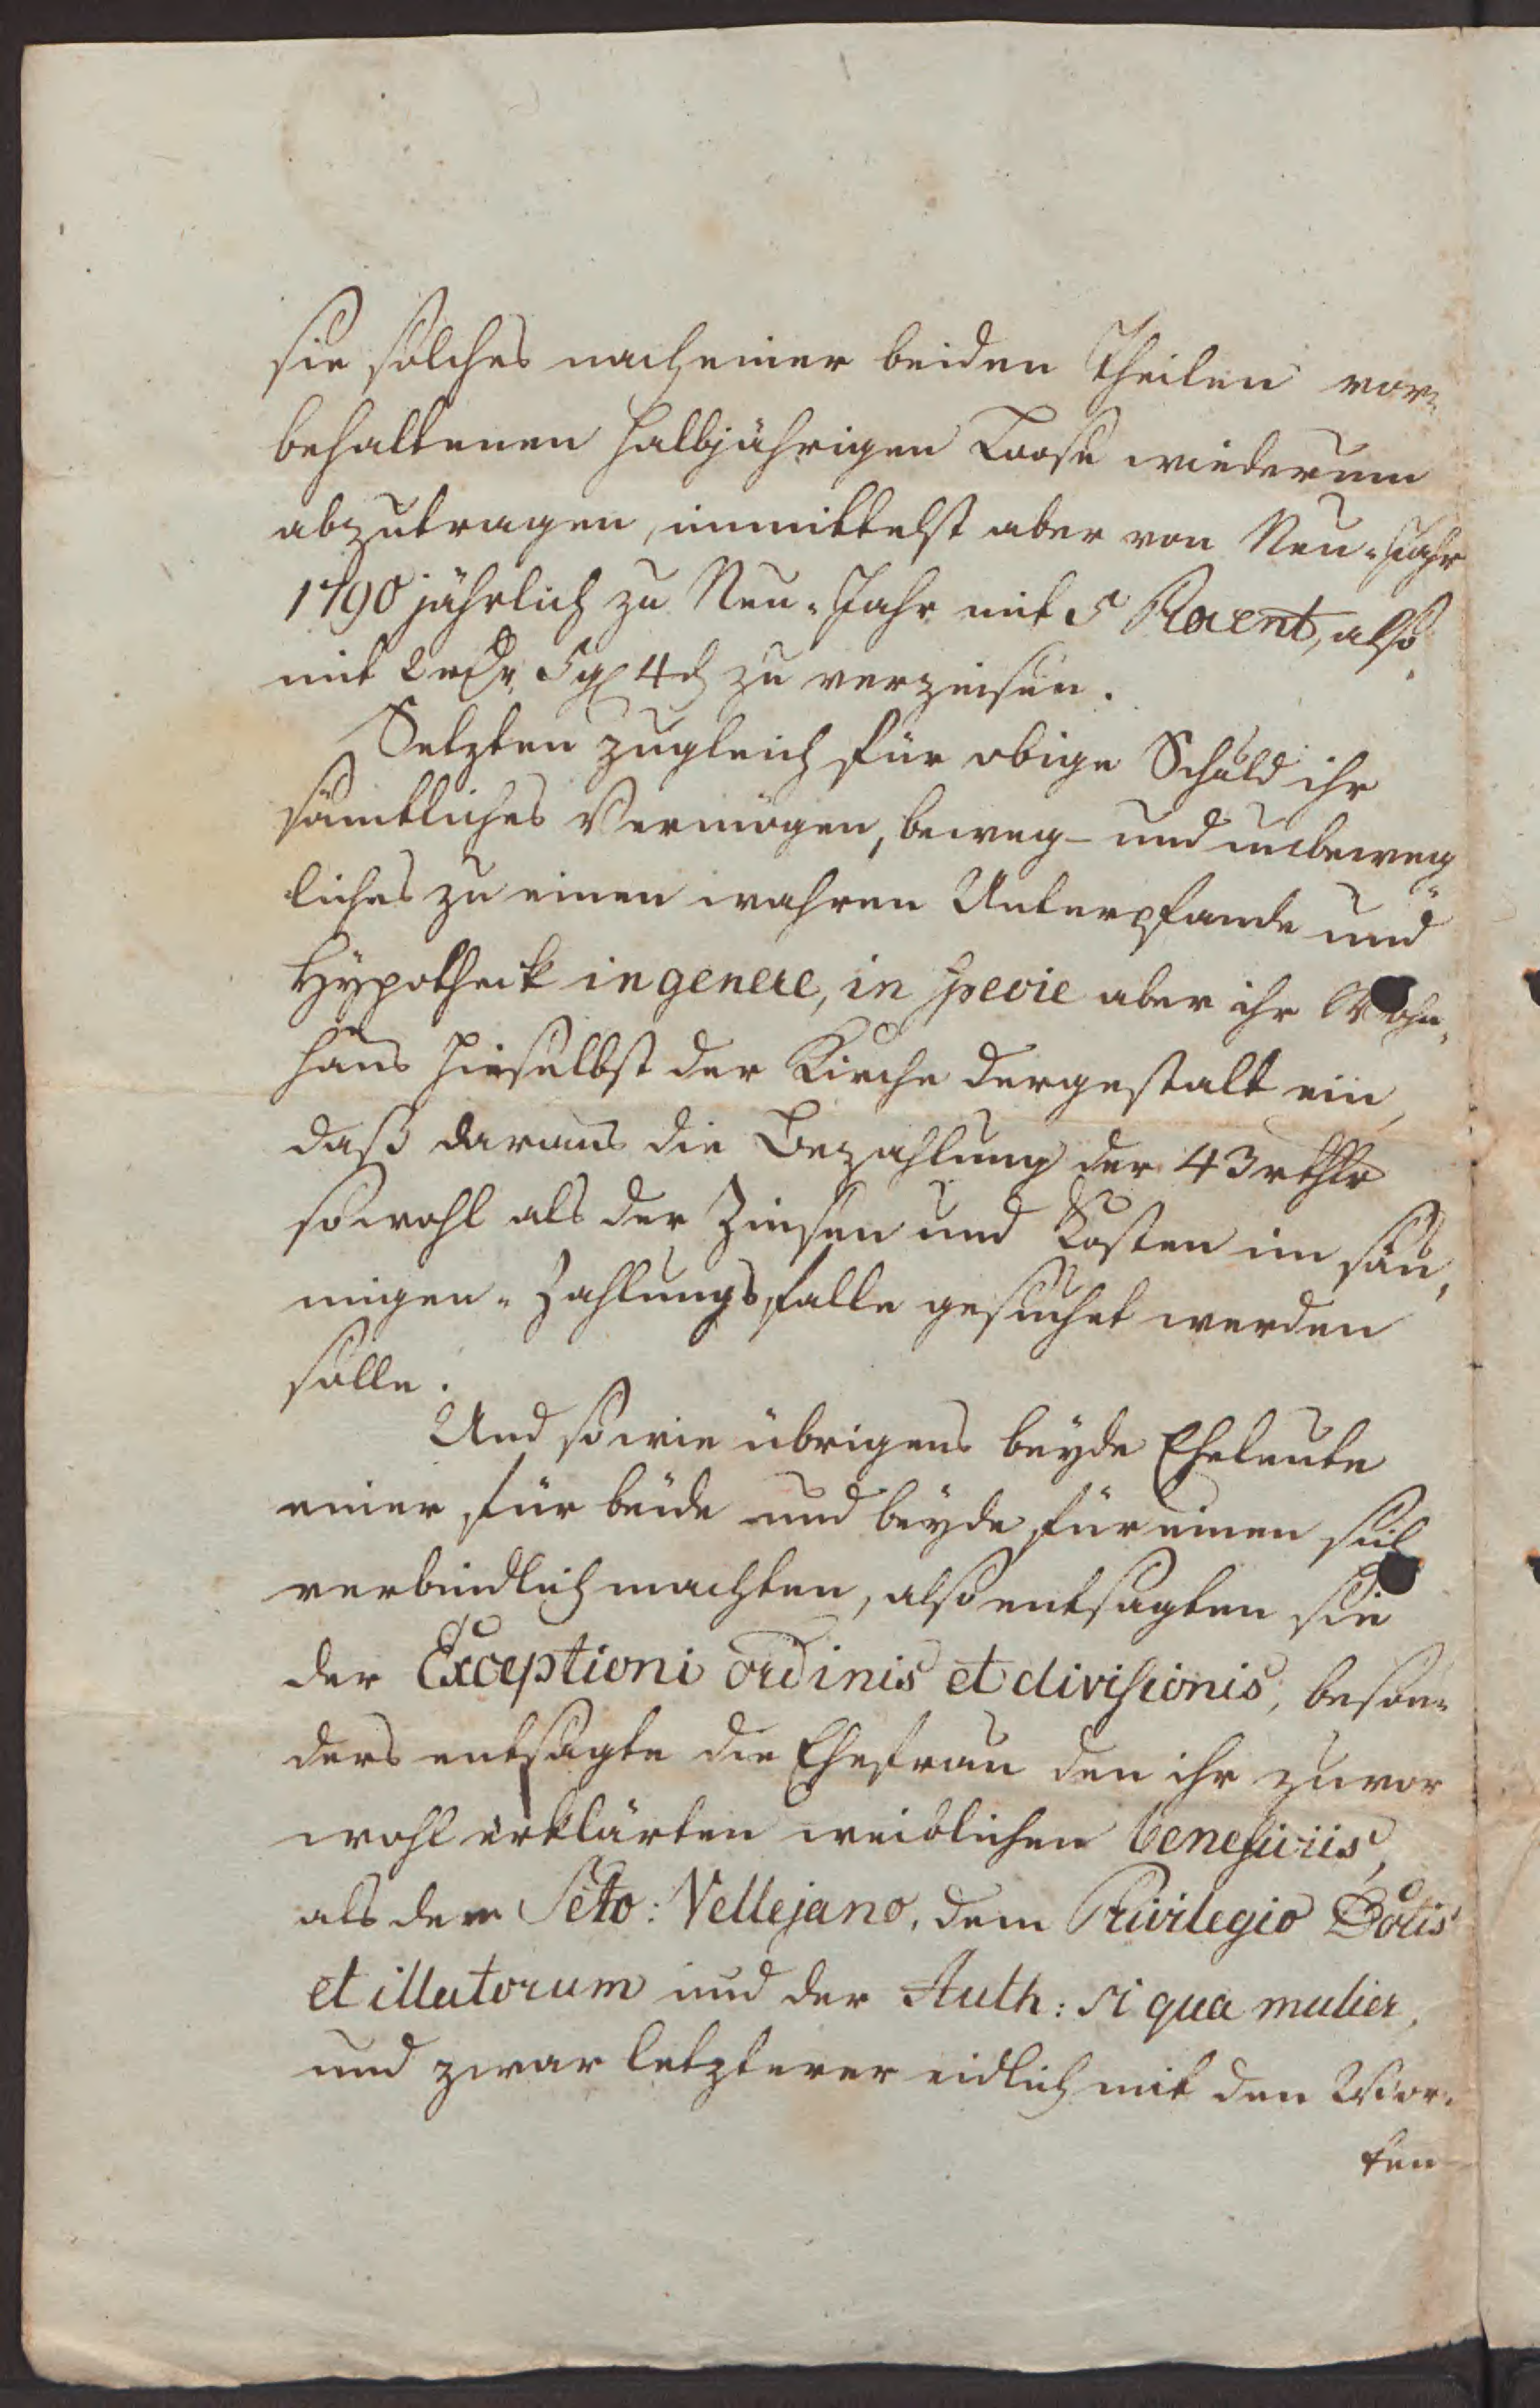 sie solches nach einer beiden Theilen vor-
behaltenen halbjährigen Loose wiederum
abzutragen, immittelst aber von Neu-Jahr
1790 jährlich zu Neu-Jahr mit 5 Procent, also
mit 2 rthr 5 g 4 d zu verzinsen.
Setzten zugleich für obige Schuld ihr
sämtliches Vermögen, beweg- und unbeweg
liches zu einen wahren Unterpfande und
Hypotheck in genere, in specie aber ihr Wohn-
haus hieselbst der Kirche dergestalt ein,
daß daraus die Bezahlung der 43 rthlr
sowohl als der Zinsen und Kosten im säu-
migen-Zahlungsfalle gesuchet werden
solle.
Und so wie übrigens beyde Eheleute
einer für beide und beyde für einen sich
verbindlich machten, also entsagten sie
der Exceptioni ordinis et divisionis, beson-
ders entsagte die Ehefrau den ihr zuvor
wohl erklärten weiblichen beneficiis,
als dem Scto: Vellejano, dem Privilegio Dotis
et illatorum und der Auth: si qua mulier,
und zwar letzterer eidlich mit den Wor-
ten